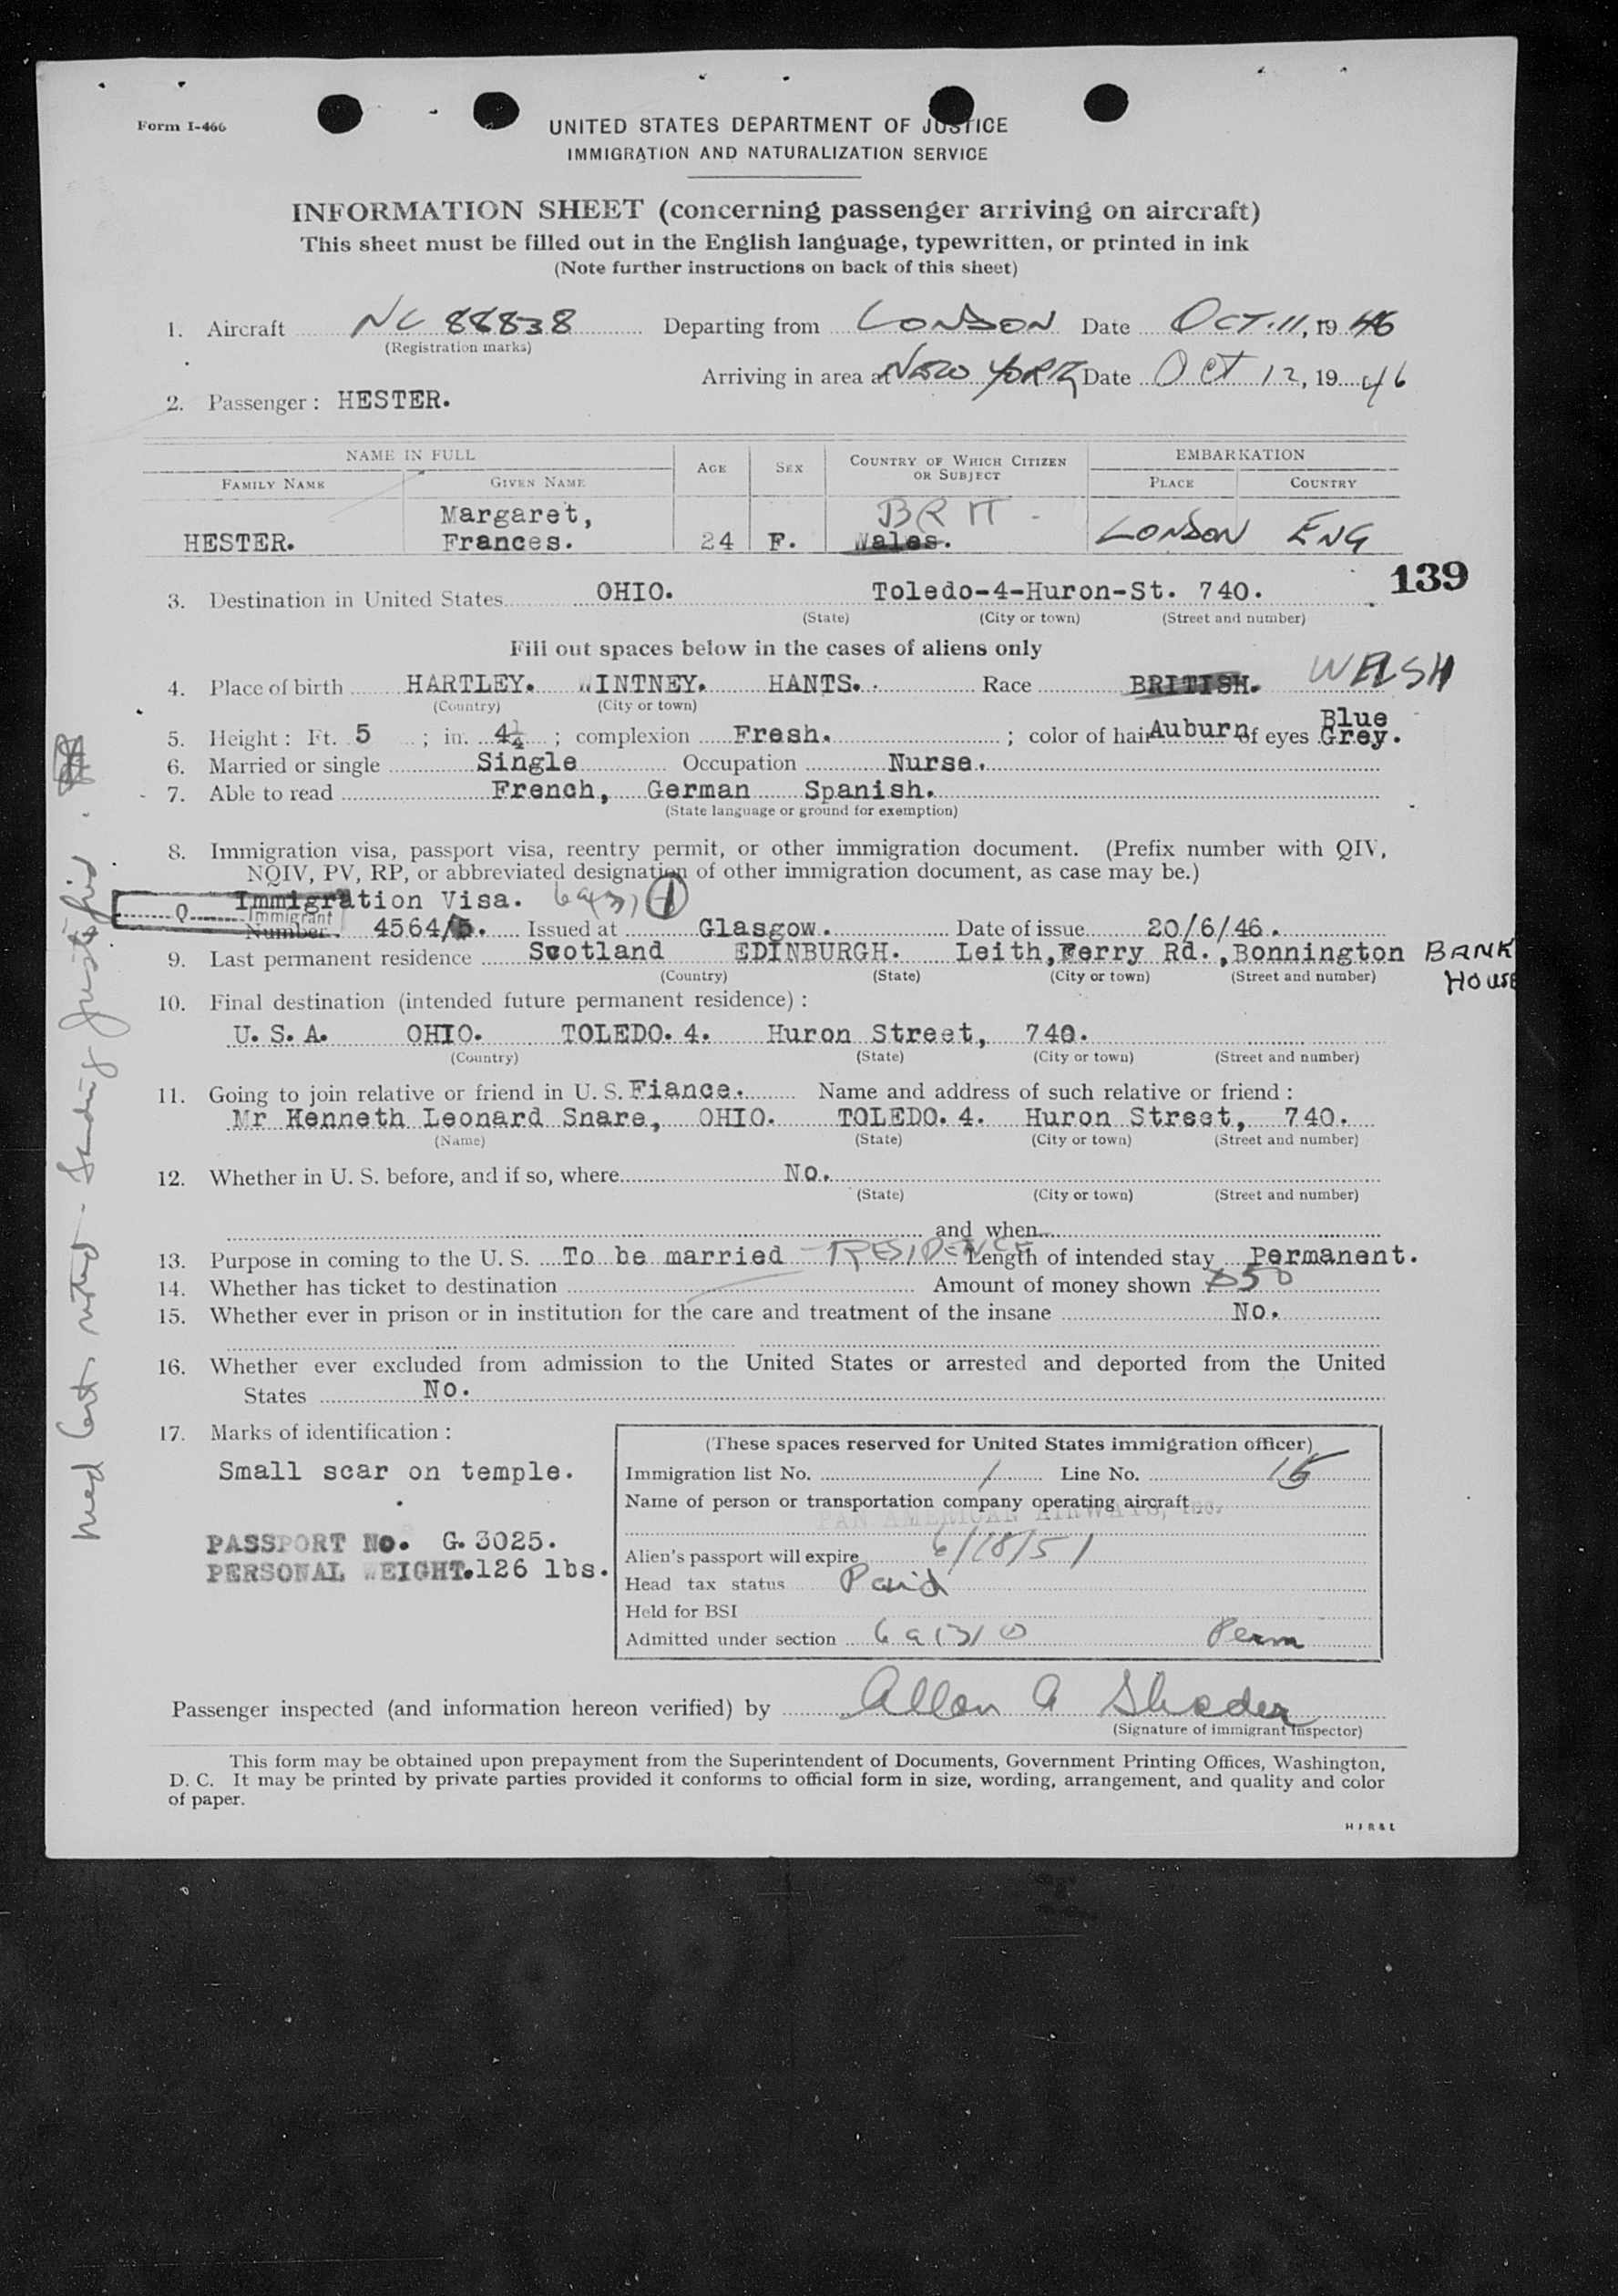 Form I-466
UNITED STATES DEPARTMENT OF JUSTICE
IMMIGRATION AND NATURALIZATION SERVICE
INFORMATION SHEET (concerning passenger arriving on aircraft)
This sheet must be filled out in the English language, typewritten, or printed in ink
(Note further instructions on back of this sheet)
1. Aircraft NC 88838 Departing from LONDON Date OCT. 11, 1946
(Registration marks)
Arriving in area at NEW YORK Date Oct 12, 1946
2. Passenger: HESTER.
NAME IN FULL AGE SEX COUNTRY OF WHICH CITIZEN OR SUBJECT EMBARKATION
FAMILY NAME GIVEN NAME PLACE COUNTRY
Margaret, BRIT -
HESTER. Frances. 24 F. Wales. LONDON ENG
139
3. Destination in United States OHIO. Toledo-4-Huron-St. 740.
(State) (City or town) (Street and number)
Fill out spaces below in the cases of aliens only
4. Place of birth HARTLEY. WINTNEY. HANTS. Race BRITISH. WELSH
(Country) (City or town)
5. Height: Ft. 5 ; in. 4¼ ; complexion Fresh. ; color of hair Auburn of eyes Blue Grey.
6. Married or single Single Occupation Nurse.
7. Able to read French, German Spanish.
(State language or ground for exemption)
8. Immigration visa, passport visa, reentry permit, or other immigration document. (Prefix number with QIV,
NQIV, PV, RP, or abbreviated designation of other immigration document, as case may be.)
Immigration Visa. 6a(3) 1
Q Immigrant
Number. 4564/5. Issued at Glasgow. Date of issue 20/6/46.
9. Last permanent residence Scotland EDINBURGH. Leith, Ferry Rd., Bonnington BANK HOUSE
(Country) (State) (City or town) (Street and number)
10. Final destination (intended future permanent residence):
U.S.A. OHIO. TOLEDO. 4. Huron Street, 740.
(Country) (State) (City or town) (Street and number)
11. Going to join relative or friend in U. S. Fiance. Name and address of such relative or friend:
Mr Kenneth Leonard Snare, OHIO. TOLEDO. 4. Huron Street, 740.
(Name) (State) (City or town) (Street and number)
12. Whether in U. S. before, and if so, where No.
(State) (City or town) (Street and number)
and when
13. Purpose in coming to the U. S. To be married - RESIDENCE Length of intended stay Permanent.
14. Whether has ticket to destination Amount of money shown 50
15. Whether ever in prison or in institution for the care and treatment of the insane No.
16. Whether ever excluded from admission to the United States or arrested and deported from the United
States No.
17. Marks of identification:
Small scar on temple.
PASSPORT No. G. 3025.
PERSONAL WEIGHT. 126 lbs.
(These spaces reserved for United States immigration officer)
Immigration list No. 1 Line No. 15
Name of person or transportation company operating aircraft
PAN AMERICAN AIRWAYS, INC.
Alien's passport will expire 6/18/51
Head tax status Paid
Held for BSI
Admitted under section 6a(3)1 Perm
Passenger inspected (and information hereon verified) by Allen A
(Signature of immigrant inspector)
This form may be obtained upon prepayment from the Superintendent of Documents, Government Printing Offices, Washington,
D. C. It may be printed by private parties provided it conforms to official form in size, wording, arrangement, and quality and color
of paper.
H J R & L
Med Cert. noted - Landing justified.